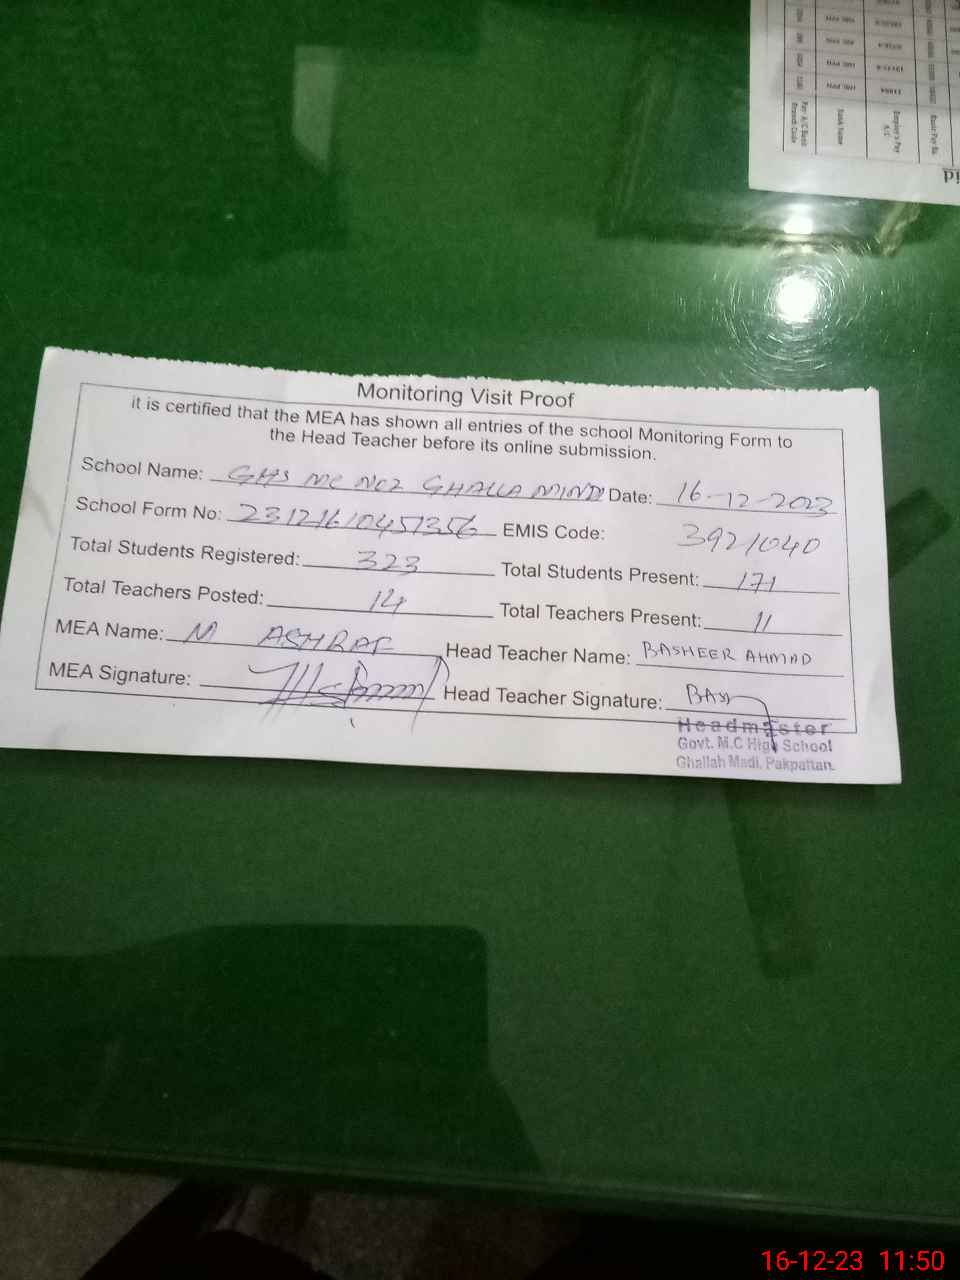 Monitoring Visit Proof
it is certified that the MEA has shown all entries of the school Monitoring Form to
the Head Teacher before its online submission.
School Name: GHS MC NO2 GHALLA MINDI Date: 16-12-2023
School Form No: 23121610451356 EMIS Code: 3921040
Total Students Registered: 323 Total Students Present: 171
Total Teachers Posted: 14 Total Teachers Present: 11
MEA Name: M ASHRAF Head Teacher Name: BASHEER AHMAD
MEA Signature: Head Teacher Signature:
Headmaster
Govt. M.C High School
Ghallah Madi, Pakpattan.
Pay A/C Bank
Branch Code
Bank Name
A/C
Basic Pay Rs.
16-12-23 11:50